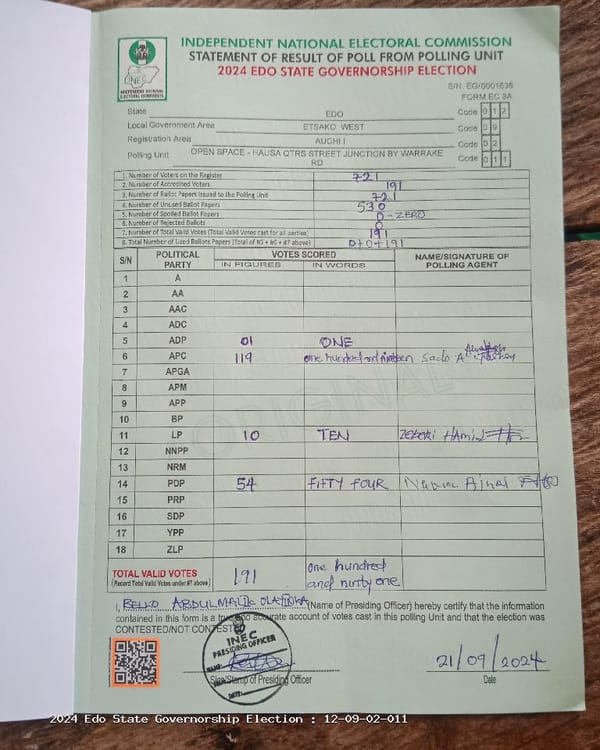 INDEPENDENT NATIONAL ELECTORAL COMMISSION
STATEMENT OF RESULT OF POLL FROM POLLING UNIT
2024 EDO STATE GOVERNORSHIP ELECTION
S/N: EG/0001636
FORM EC 8A
State EDO Code 0 1 2
Local Government Area ETSAKO WEST Code 0 9
Registration Area AUCHI I Code 0 2
Polling Unit OPEN SPACE - HAUSA QTRS STREET JUNCTION BY WARRAKE RD Code 0 1 1
1. Number of Voters on the Register 721
2. Number of Accredited Voters 191
3. Number of Ballot Papers Issued to the Polling Unit 721
4. Number of Unused Ballot Papers 530
5. Number of Spoiled Ballot Papers 0 - ZERO
6. Number of Rejected Ballots 0
7. Number of Total Valid Votes (Total Valid Votes cast for all parties) 191
8. Total Number of Used Ballots Papers (Total of #5 + #6 + #7 above) 0+0+191
S/N POLITICAL PARTY VOTES SCORED NAME/SIGNATURE OF POLLING AGENT
IN FIGURES IN WORDS
1 A
2 AA
3 AAC
4 ADC
5 ADP 01 ONE
6 APC 119 one hundred and nineteen Sado A
7 APGA
8 APM
9 APP
10 BP
11 LP 10 TEN
12 NNPP
13 NRM
14 PDP 54 FIFTY FOUR
15 PRP
16 SDP
17 YPP
18 ZLP
ORIGINAL
TOTAL VALID VOTES 191 one hundred and ninty one
(Record Total Valid Votes under #7 above)
I, BELLO ABDULMALIK OLAYINKA (Name of Presiding Officer) hereby certify that the information
contained in this form is a true and accurate account of votes cast in this polling Unit and that the election was
CONTESTED/NOT CONTESTED
INEC
PRESIDING OFFICER
NAME:
DATE:
21/09/2024
Sign/Stamp of Presiding Officer Date
2024 Edo State Governorship Election : 12-09-02-011